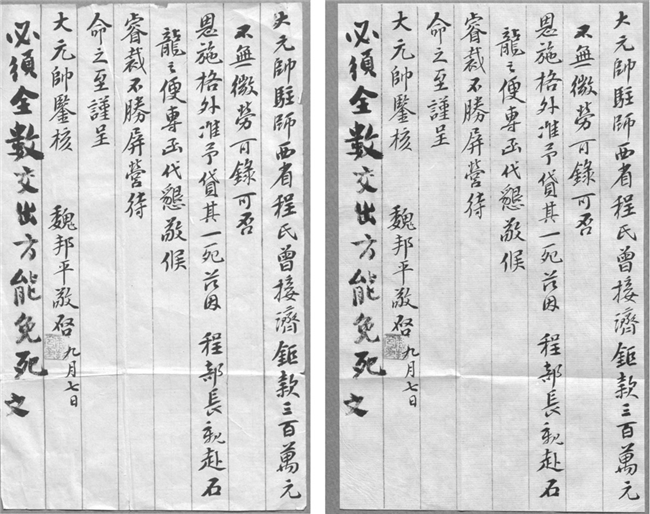 大元帥駐師西省程氏曾接濟鉅款三百萬元
不無微勞可錄可否
恩施格外准予貸其一死茲因 程部長親赴石
龍之便專函代懇敬候
睿裁不勝屏營待
命之至謹呈
大元帥鑒核 魏邦平敬啓 九月七日
必須全數交出方能免死 文
大元帥駐師西省程氏曾接濟鉅款三百萬元
不無微勞可錄可否
恩施格外准予貸其一死茲因 程部長親赴石
龍之便專函代懇敬候
睿裁不勝屏營待
命之至謹呈
大元帥鑒核 魏邦平敬啓 九月七日
必須全數交出方能免死 文